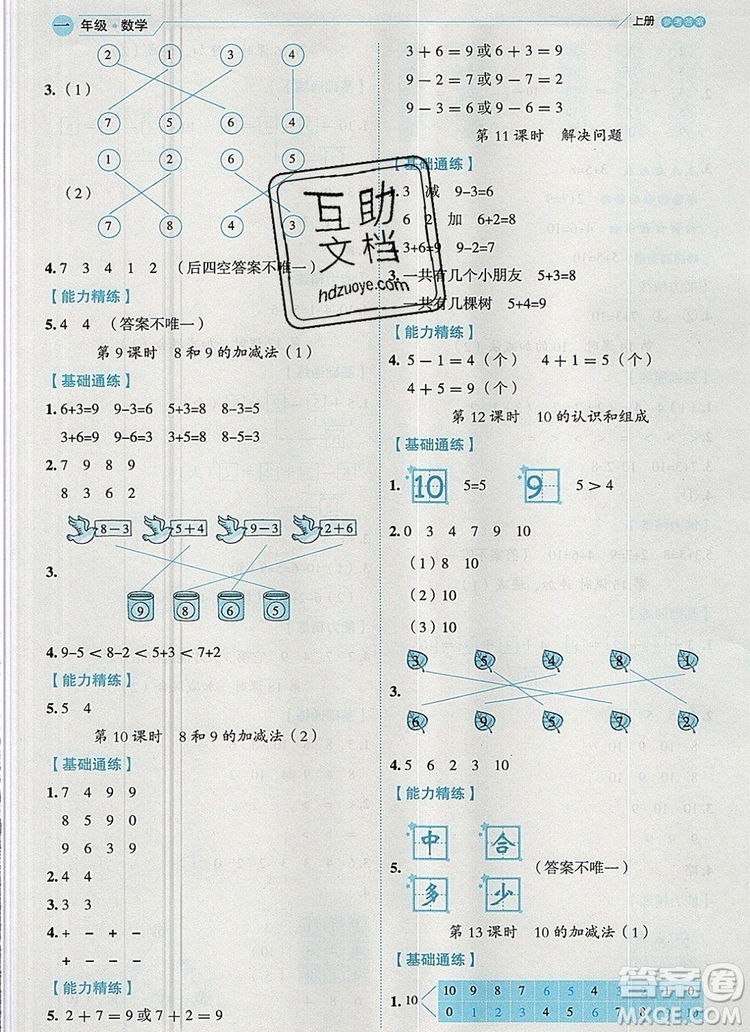 一 年级·数学
上册 参考答案
2 1 3 4
3.（1）
7 5 6 4
1 2 5 6
（2）
7 8 4 3
4. 7 3 4 1 2 （后四空答案不唯一）
【能力精练】
5. 4 4 （答案不唯一）
第 9 课时 8 和 9 的加减法（1）
【基础通练】
1. 6+3=9 9-3=6 5+3=8 8-3=5
3+6=9 9-6=3 3+5=8 8-5=3
2. 7 9 8 9
8 3 6 2
8-3 5+4 9-3 2+6
3.
9 8 6 5
4. 9-5<8-2<5+3<7+2
【能力精练】
5. 5 4
第 10 课时 8 和 9 的加减法（2）
【基础通练】
1. 7 4 9 9
8 5 9 0
9 6 3 9
2. 4 4
3. 3 3
4. + - + -
- + - +
【能力精练】
5. 2+7=9 或 7+2=9
3+6=9 或 6+3=9
9-2=7 或 9-7=2
9-3=6 或 9-6=3
第 11 课时 解决问题
【基础通练】
1. 3 减 9-3=6
6 2 加 6+2=8
3+6=9 9-2=7
3. 一共有几个小朋友 5+3=8
一共有几棵树 5+4=9
【能力精练】
4. 5-1=4（个） 4+1=5（个）
4+5=9（个）
第 12 课时 10 的认识和组成
【基础通练】
1. 10 5=5 9 5>4
2. 0 3 4 7 9 10
（1）8
（2）10
（3）10
3 5 4 8 1
3.
6 9 5 2 7
4. 5 6 2 3 10
【能力精练】
中 合
5. （答案不唯一）
多 少
第 13 课时 10 的加减法（1）
【基础通练】
10 9 8 7 6 5 4
1. 10
0 1 2 3 4 5 6
互助
文档
hdzuoye.com
答案圈
MXQE.COM